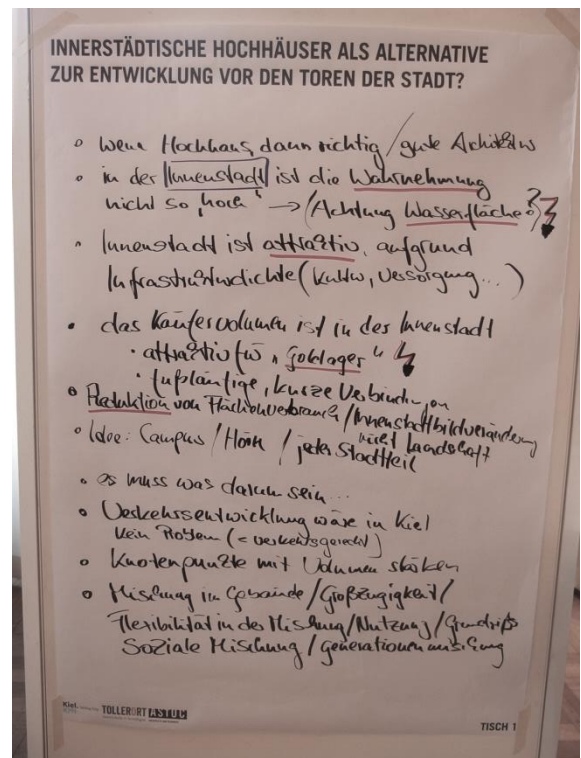 INNERSTÄDTISCHE HOCHHÄUSER ALS ALTERNATIVE
ZUR ENTWICKLUNG VOR DEN TOREN DER STADT?
wenn Hochhaus, dann richtig / gute Architektur
in der Innenstadt ist die Wahrnehmung
nicht so „hoch“ → (Achtung Wasserfläche?)
Innenstadt ist attraktiv, aufgrund
Infrastrukturdichte (Kultur, Versorgung...)
das Käufervolumen ist in der Innenstadt
• attraktiv für „Goldlager“
• fußläufige, kurze Verbindungen
Reduktion von Flächenverbrauch / Innenstadtbildveränderung
nicht Landschaft
Idee: Campus / Hörn / jeder Stadtteil
es muss was darum sein...
Verkehrsentwicklung wäre in Kiel
kein Problem (= verkehrsgerecht)
Knotenpunkte mit Volumen stärken
Mischung im Gebäude / Großzügigkeit /
Flexibilität in der Mischung / Nutzung / Grundriß
Soziale Mischung / Generationenmischung
Kiel. TOLLERORT ASTOC
TISCH 1